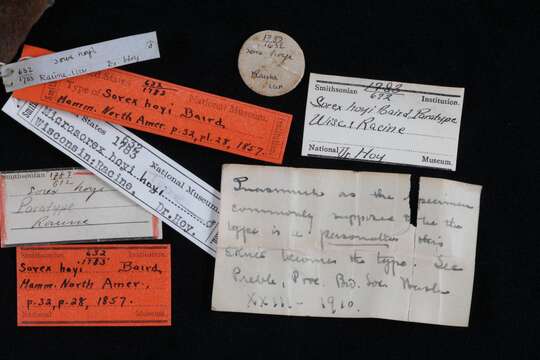 Sorex hoyi ♂
632
1783 Racine, Wis. Dr. Hoy
States 632
1783 National Museum.
Type of Sorex hoyi Baird,
Mamm. North Amer. p. 32, pl. 28, 1857.
States 632
1783 National Museum.
Microsorex hoyi hoyi ♂
Wisconsin; Racine. Dr. Hoy.
1783
632
Sorex hoyi
Racine
Wisc.
Smithsonian 1783
632 Institution.
Sorex hoyi Baird Paratype
Wisc. Racine
National Dr Hoy Museum.
Smithsonian 1783
632
Sorex hoyi
Paratype
Racine
Smithsonian 632
1783 Institution.
Sorex hoyi Baird,
Mamm. North Amer.,
p. 32, p. 28, 1857.
National Museum
Inasmuch as the specimen
commonly supposed to be the
type is a personatus this
skull becomes the type. See
Preble, Proc. Bio. Soc. Wash
XXIII - 1910.